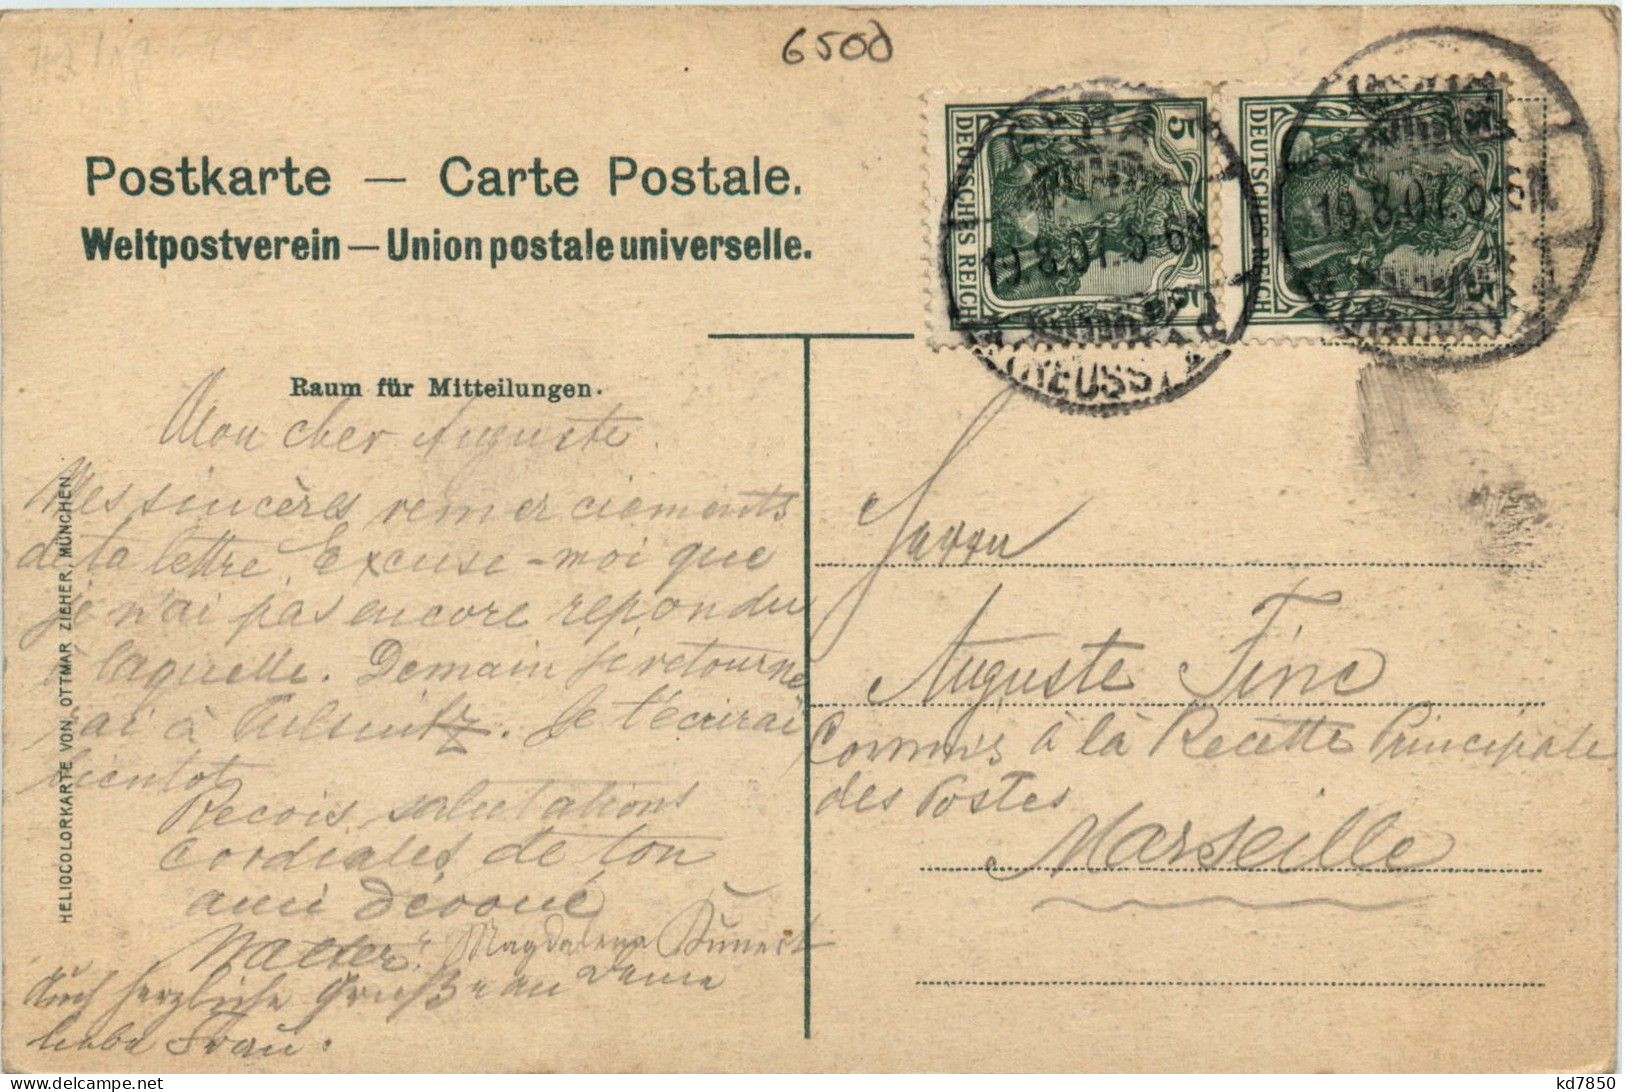 6500
Postkarte — Carte Postale.
Weltpostverein — Union postale universelle.
DEUTSCHES REICH 5 5
DEUTSCHES REICH 5 5
GERA
19.8.07. 5-6N
(REUSS)
19.8.07. 5-6N
Raum für Mitteilungen.
Mon cher Auguste.
Mes sincères remerciements
de ta lettre. Excuse-moi que
je n'ai pas encore repondu
à laquelle. Demain je retourne
rai à Pulsnitz. Je t'écrirai
bientot
Recois salutations
cordiales de ton
ami dévoué
Walter. Magdalena Kunert
Auch herzliche Grüße an Deine
liebe Frau.
HELIOCOLORKARTE VON OTTMAR ZIEHER, MÜNCHEN
Herrn
Auguste Finc
Commis à la Recette Principale
des Postes
Marseille
kd7850